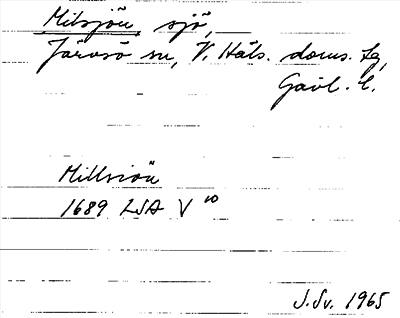 Milsjön, sjö,
Järvsö sn, V. Häls. doms. sg,
Gävl. l.
Millsiön
1689 LSA V 10
J. Sv. 1965